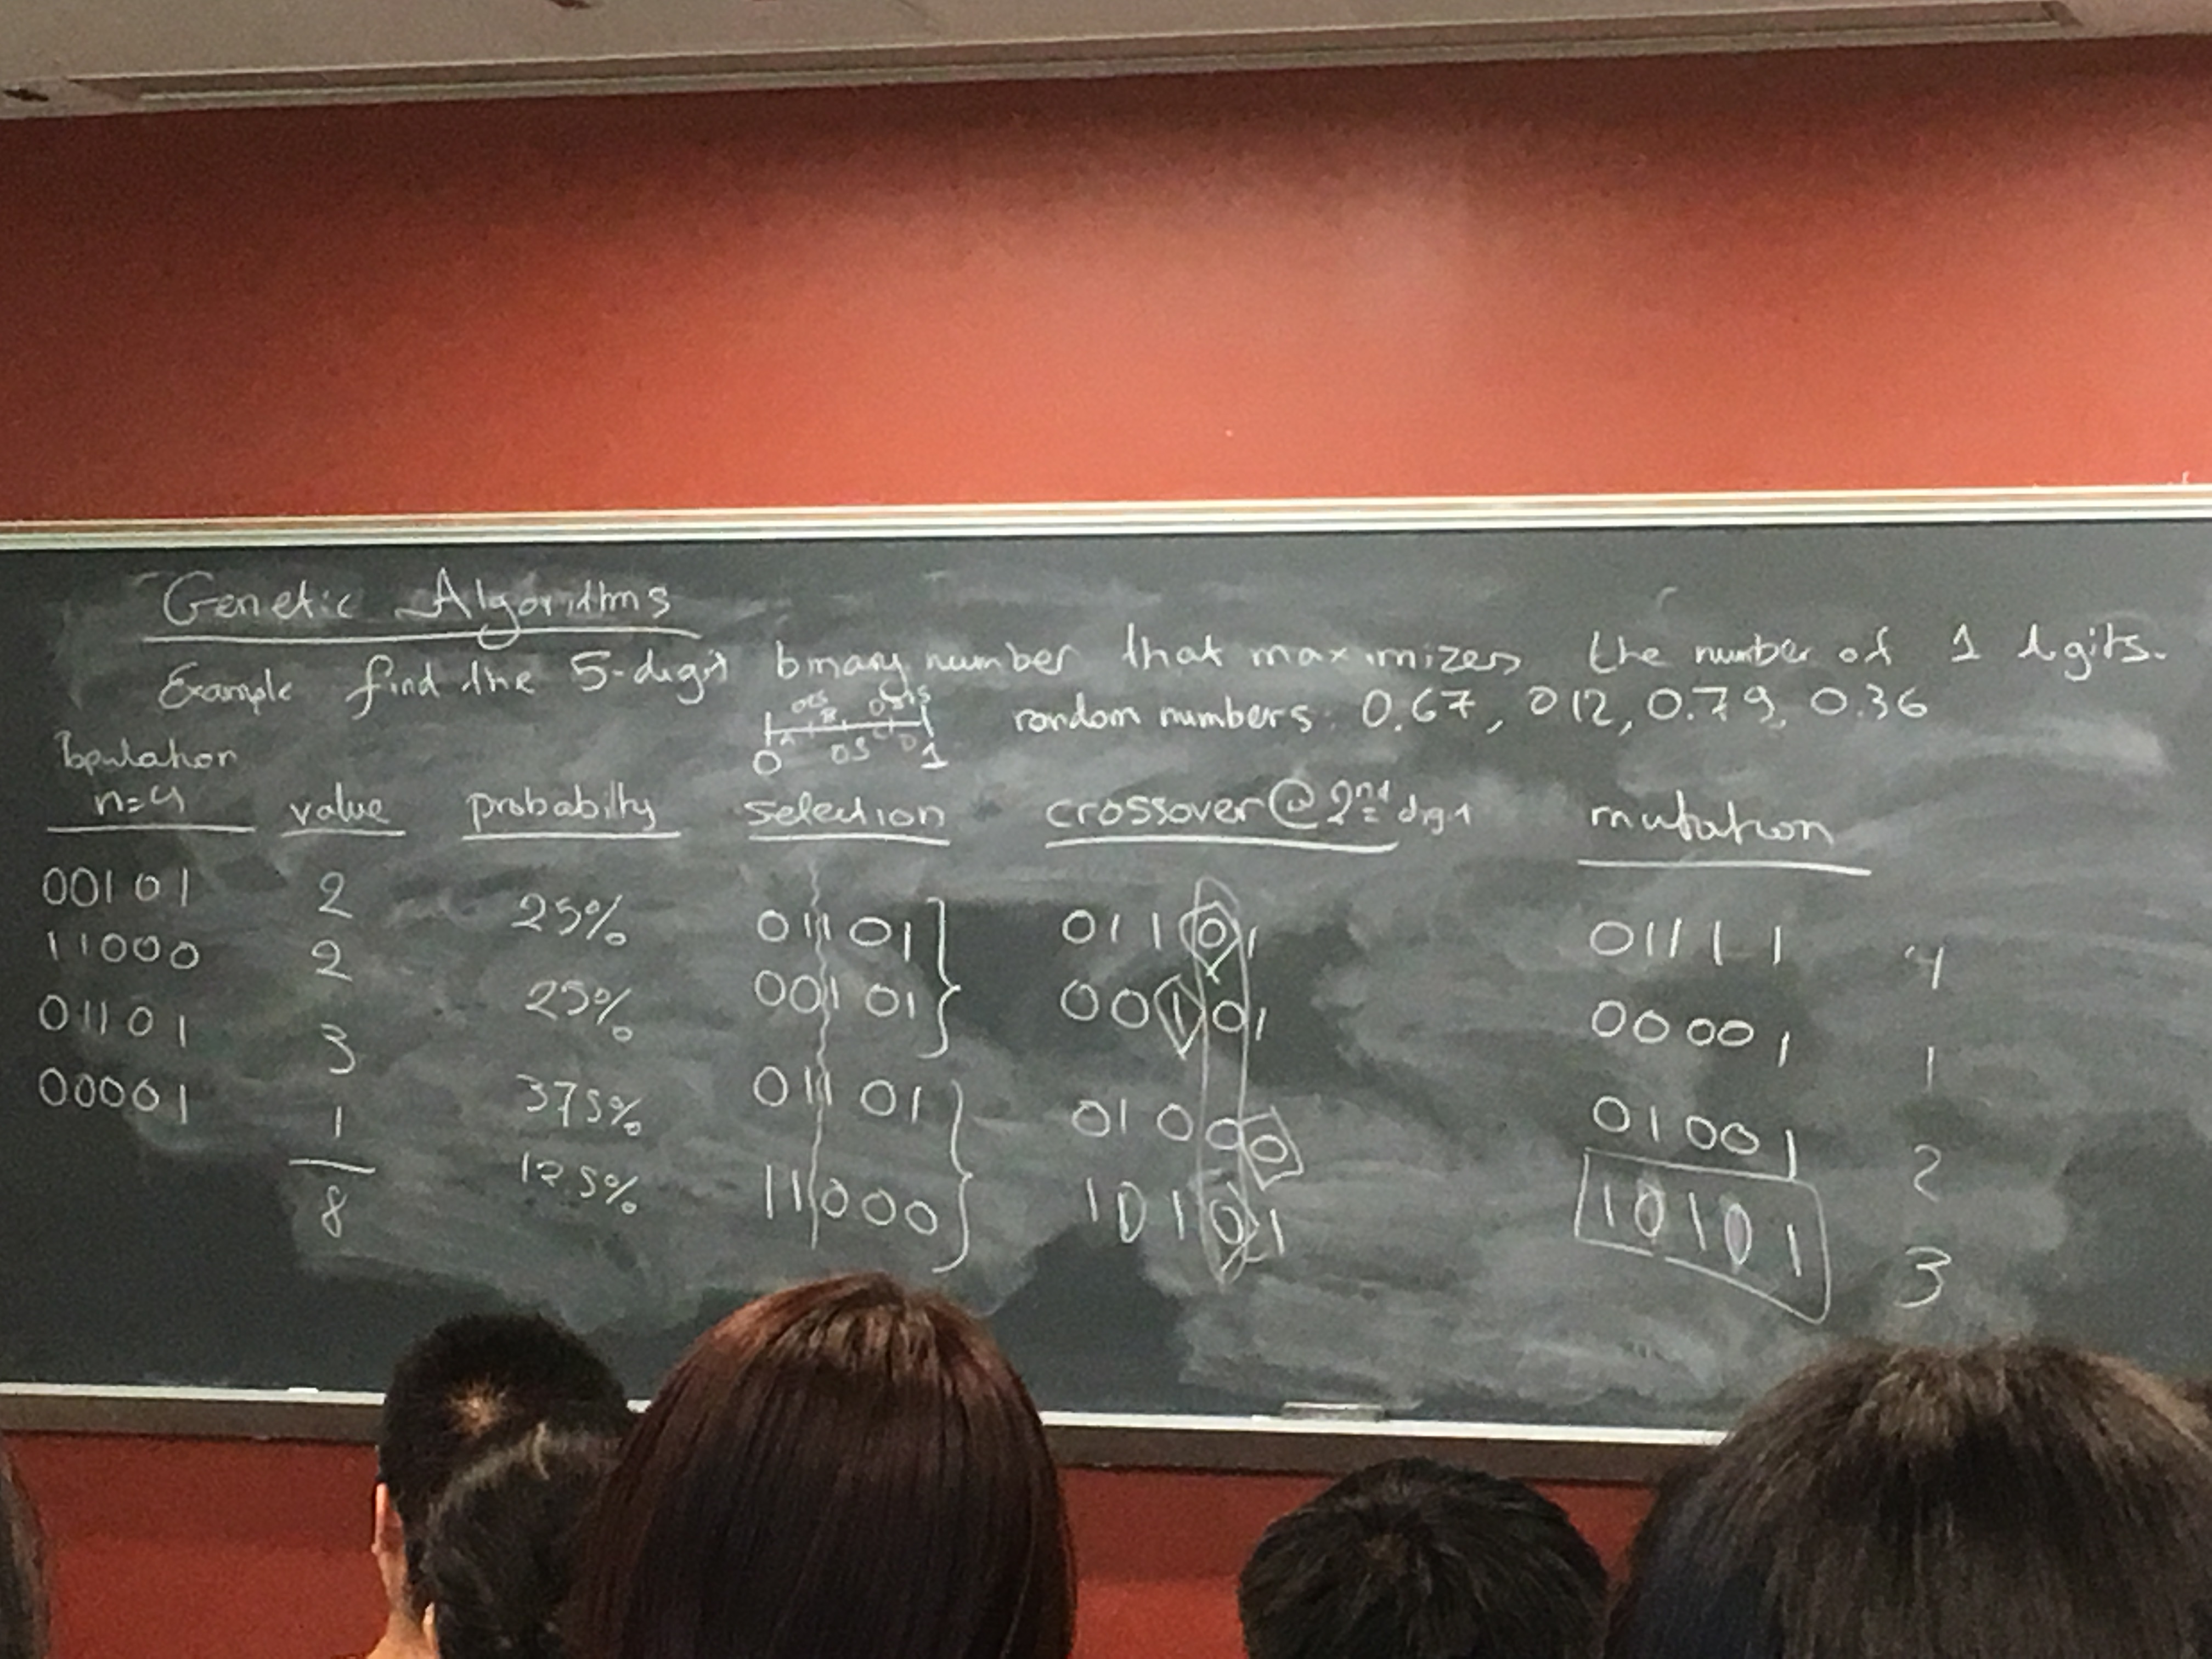 Genetic Algorithms
Example find the 5-digit binary number that maximizes the number of 1 digits.
0 0.5 1 A B C D
random numbers: 0.67, 012, 0.79, 0.36
Population n=4 value probability selection crossover @ 2nd digit mutation
00101 2 25% 01101 01101 01111 4
11000 2 25% 00101 00101 00001 1
01101 3 37.5% 01101 01000 01001 2
00001 1 12.5% 11000 10101 10101 3
8